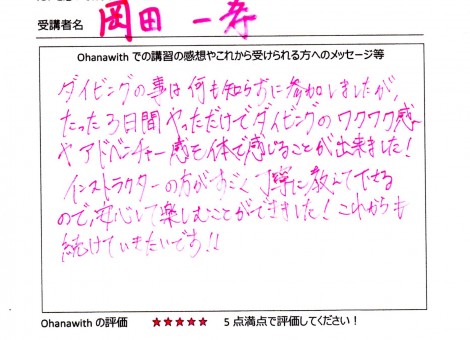 受講者名 岡田 一寿
Ohanawith での講習の感想やこれから受けられる方へのメッセージ等
ダイビングの事は何も知らずに参加しましたが、
たった3日間やっただけでダイビングのワクワク感
やアドベンチャー感を体で感じることが出来ました!
インストラクターの方がすごく丁寧に教えて下さる
ので、安心して楽しむことができました!これからも
続けていきたいです!!
Ohanawith の評価 ★★★★★ 5 点満点で評価してください!